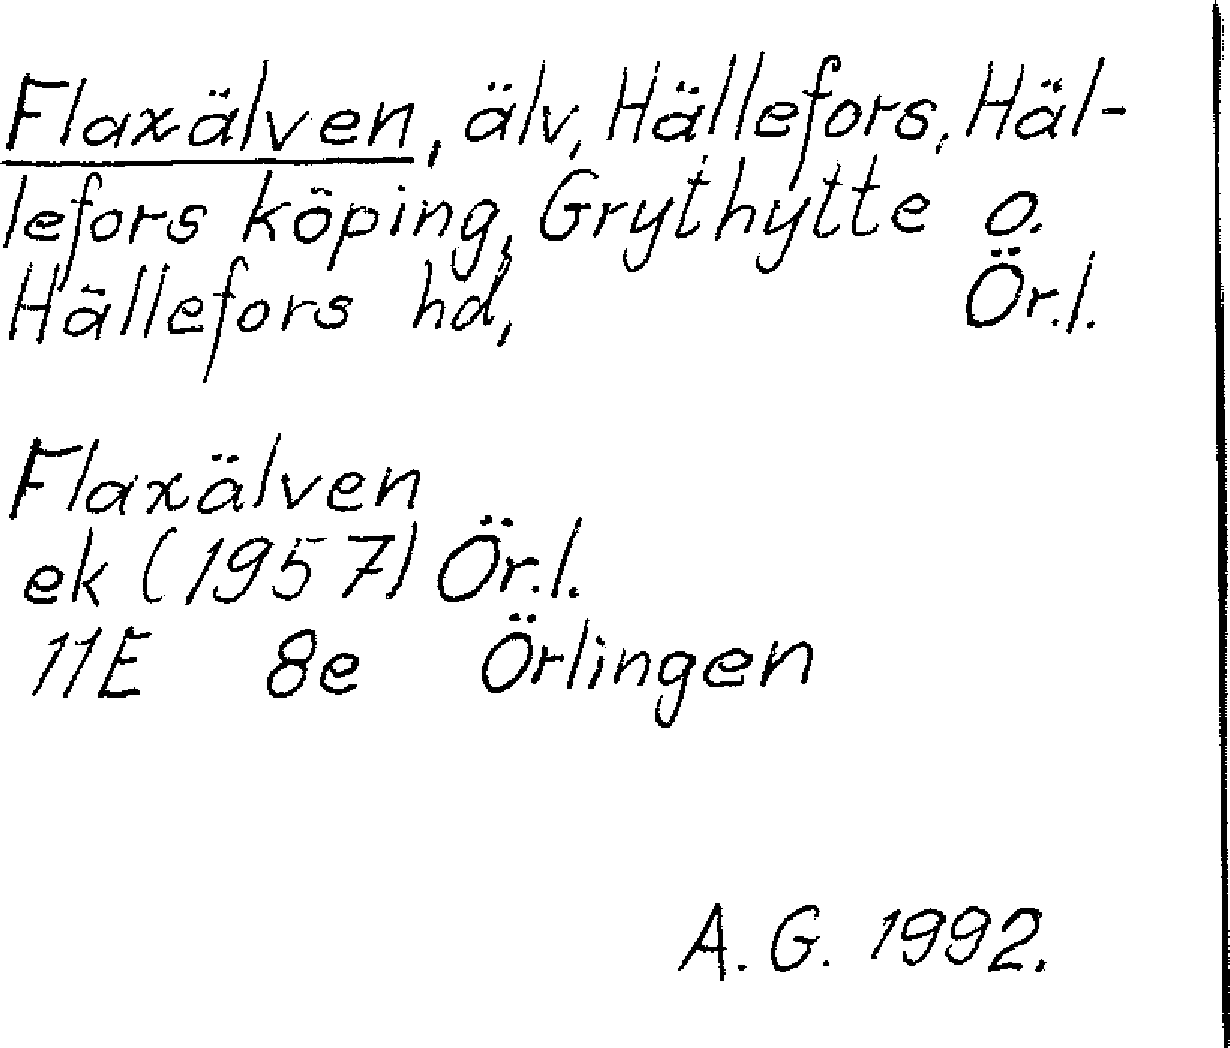 Flaxälven, älv, Hällefors, Häl-
lefors köping, Grythytte o.
Hällefors hd, Ör.l.
Flaxälven
ek (1957) Ör.l.
11E 8e Örlingen
A.G. 1992.